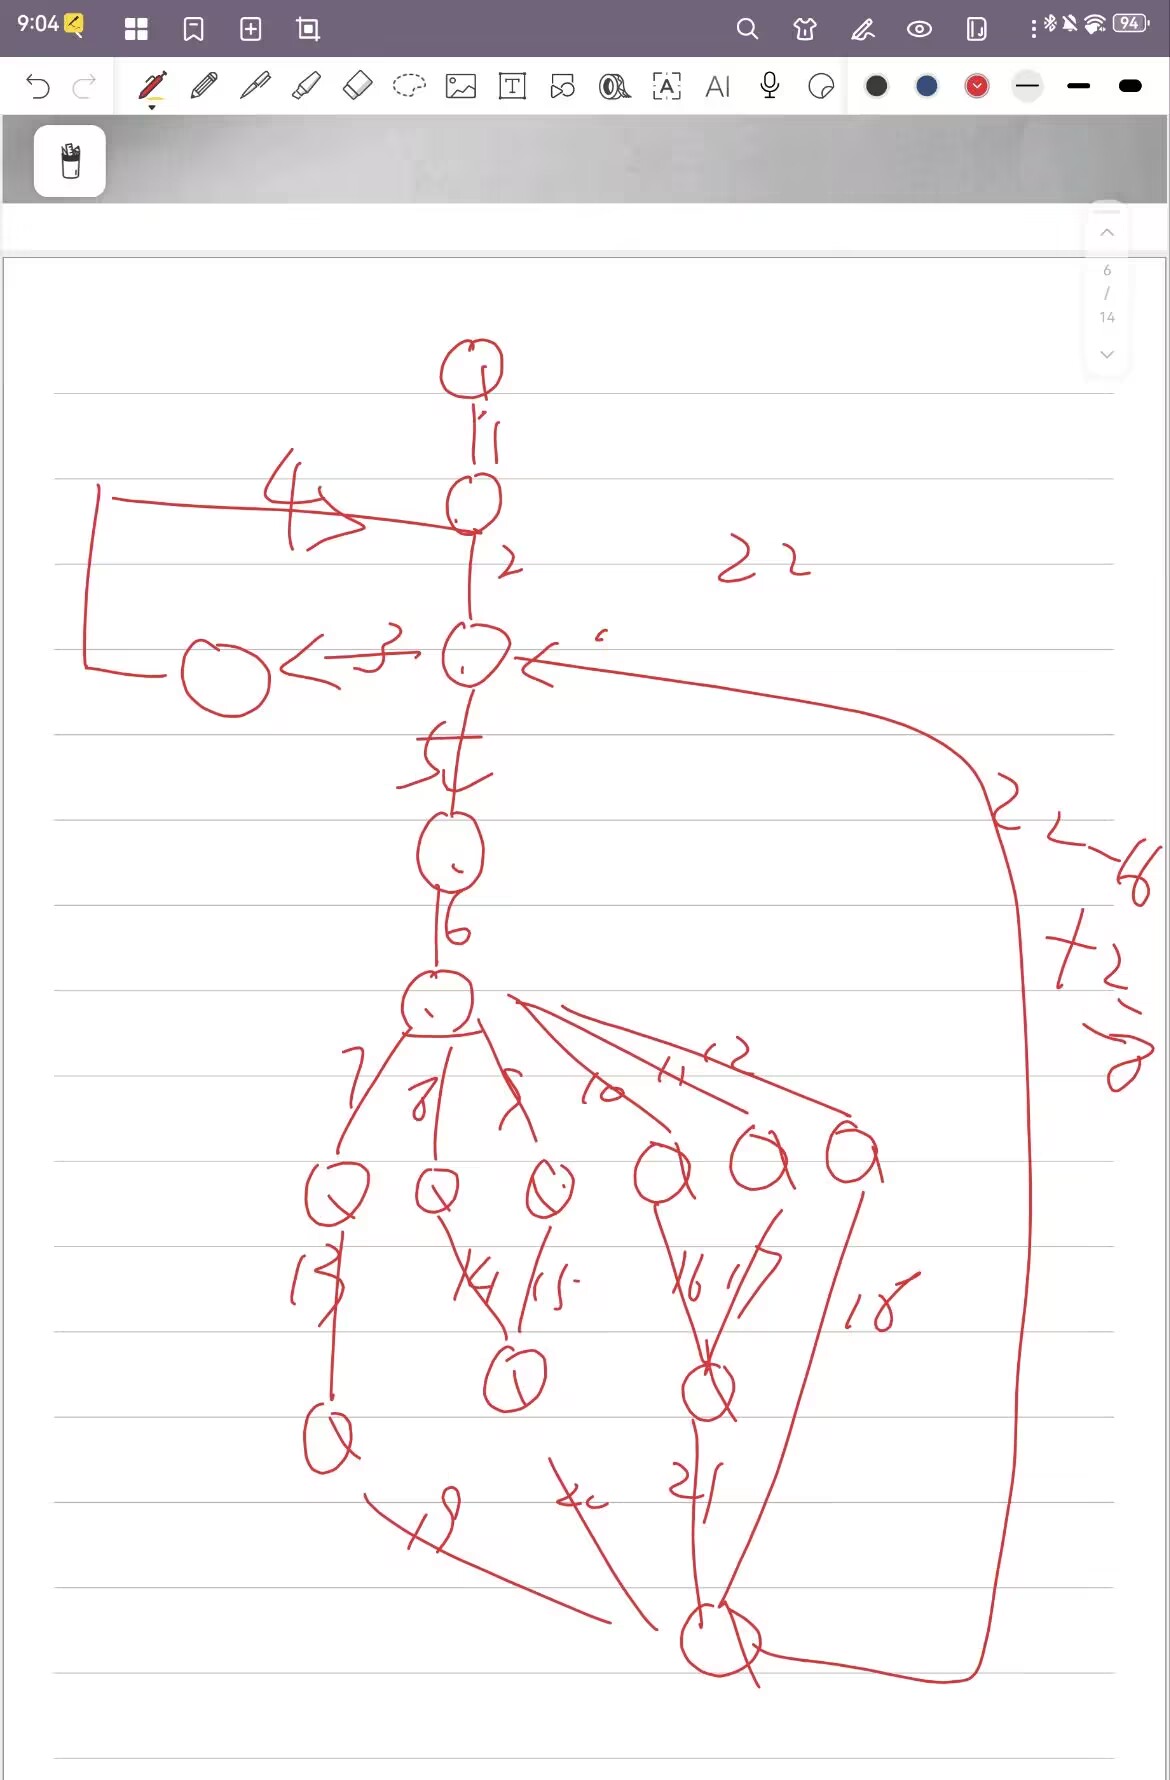 9:04
94
T
A
AI
6
/
14
1
4
2
22
3
5
2
6
+2
7
8
10
11
12
13
14
15
16
17
18
20
21